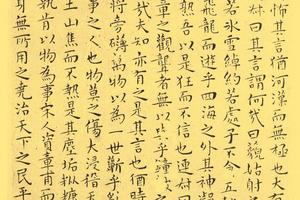 怖其言猶河漢而無極也大有
叔曰其言謂何哉曰藐姑射
若冰雪綽約若處子不食五
飛龍而遊乎四海之外其神凝
吾以是狂而不信也連叔曰
章之觀聾者無以與乎鐘
哉夫知亦有之是其言也猶時
將旁礴萬物以為一世蘄乎
事之人也物莫之傷大浸稽天
土山焦而不熱是其塵垢秕糠
孰肯以物為事宋人資章甫而
身無所用之堯治天下之民平